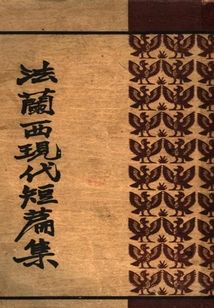 法蘭西現代短篇集